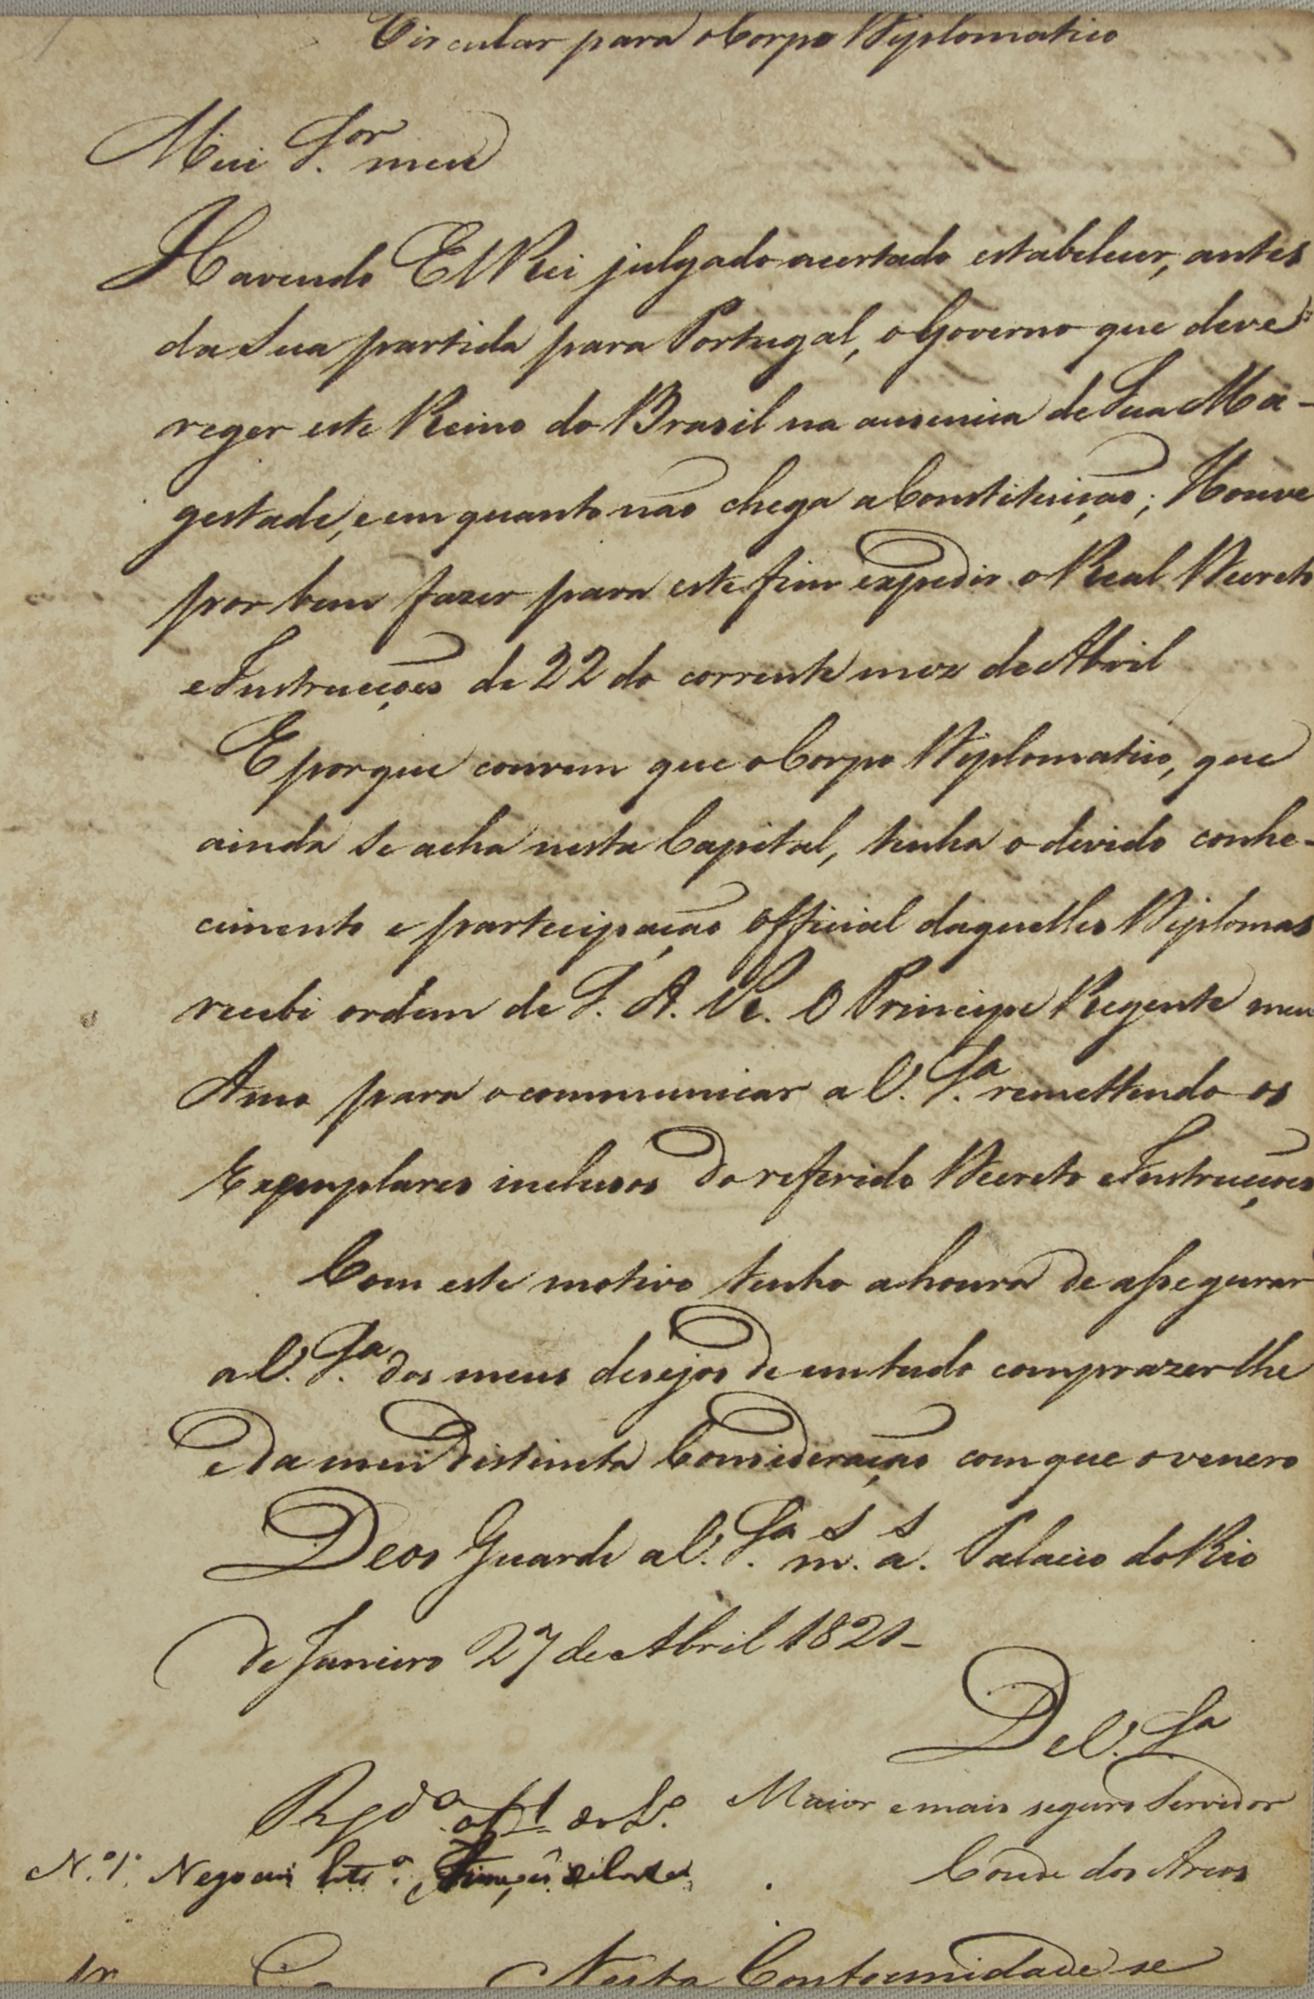 Circular para o Corpo Diplomatico
Mui S.or meu
Havendo El Rei julgado acertado estabelecer, antes
da Sua partida para Portugal, o Governo que deve
reger este Reino do Brasil na ausencia de Sua Ma-
gestade, e em quanto não chega a Constituição; Houve
por bem fazer para este fim expedir o Real Decreto
e Instrucções de 22 do corrente mez de Abril
E porque convem que o Corpo Diplomatico, que
ainda se acha nesta Capital, tenha o devido conhe-
cimento e participação official daquelles Diplomas
recebi ordem de S. A. R. O Principe Regente meu
Amo para o communicar a V. S.a remettendo os
Exemplares inclusos do referido Decreto e Instrucções
Com este motivo tenho a honra de assegurar
a V. S.a dos meus desejos de em tudo comprazer lhe
e da mui distincta Consideração com que o venero
Deos Guarde a V. S.a m.s a.s Palacio do Rio
de Janeiro 27 de Abril 1821-
De V. S.a
Maior e mais seguro Servidor
Conde dos Arcos
Rg.do a f 1 do L.o
N.o 1.o Negocios
Nesta Conformidade se